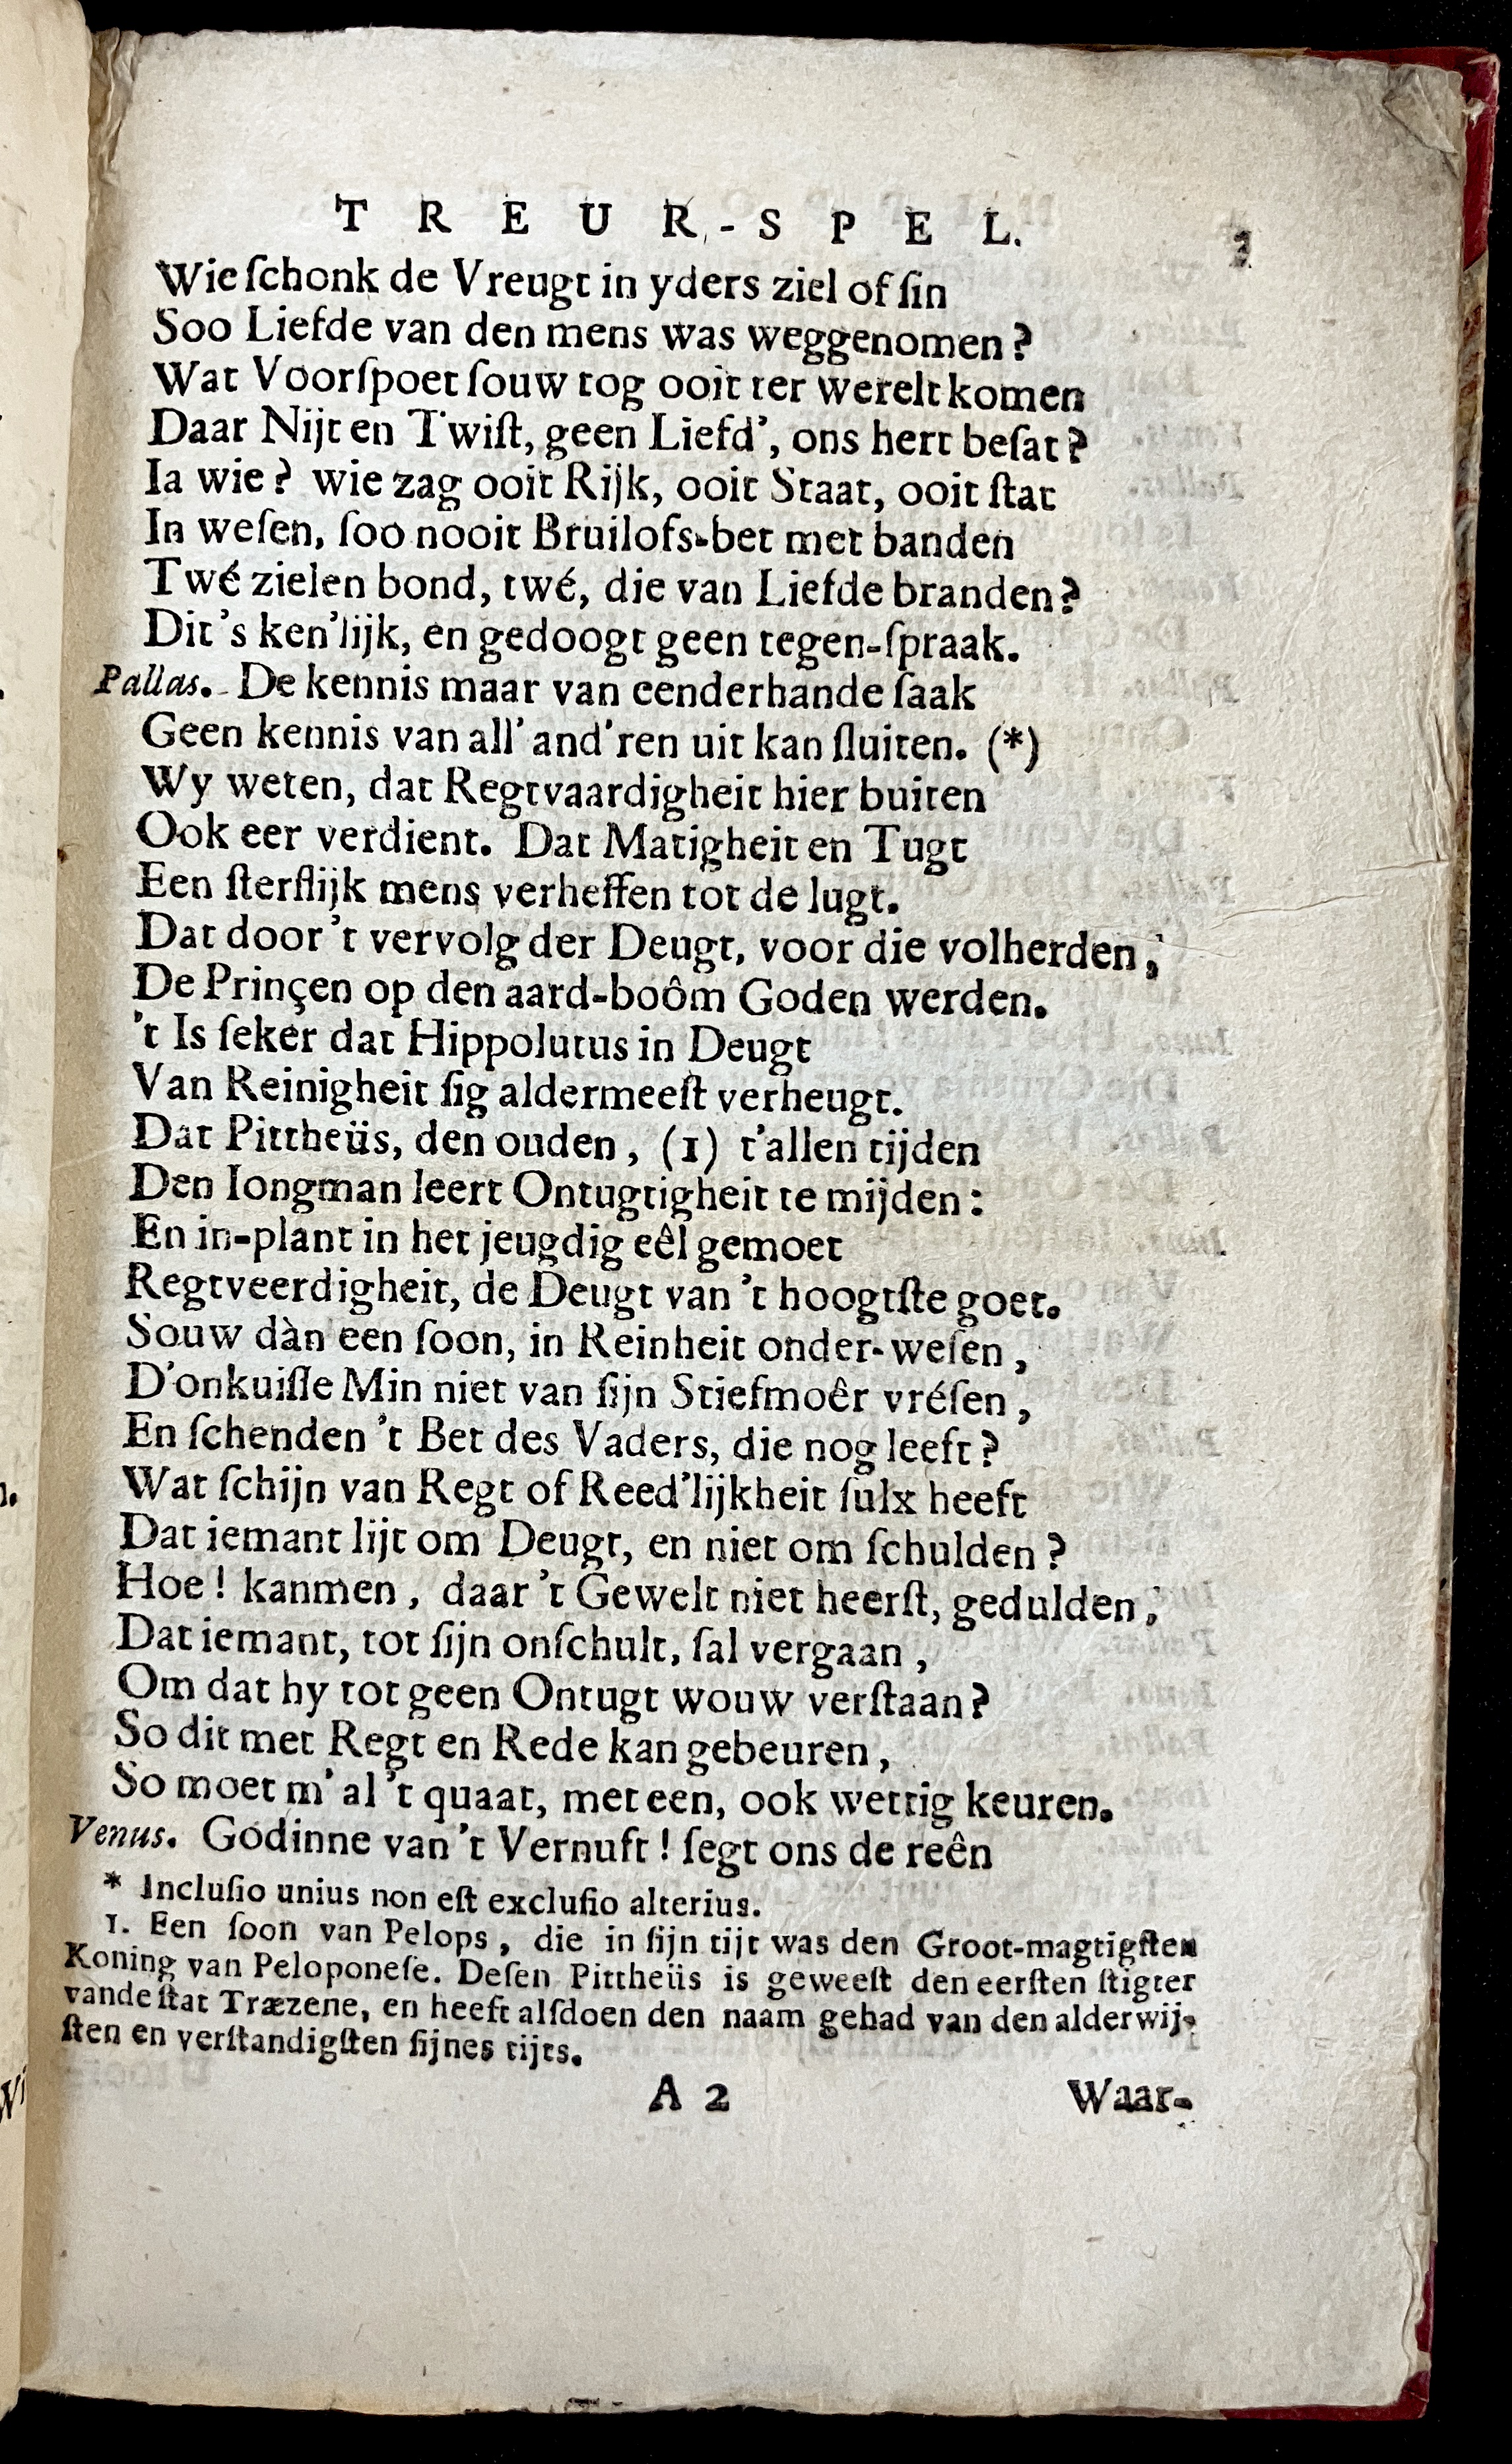 TREUR-SPEL. 3
Wie ſchonk de Vreugt in yders ziel of ſin
Soo Liefde van den mens was weggenomen?
Wat Voorſpoet ſouw tog ooit ter werelt komen
Daar Nijt en Twiſt, geen Liefd', ons hert beſat?
Ia wie? wie zag ooit Rijk, ooit Staat, ooit ſtat
In weſen, ſoo nooit Bruilofs-bet met banden
Twé zielen bond, twé, die van Liefde branden?
Dit's ken'lijk, en gedoogt geen tegen-ſpraak.
Pallas. De kennis maar van eenderhande ſaak
Geen kennis van all' and'ren uit kan ſluiten. (*)
Wy weten, dat Regtvaardigheit hier buiten
Ook eer verdient. Dat Matigheit en Tugt
Een ſterflijk mens verheffen tot de lugt.
Dat door 't vervolg der Deugt, voor die volherden,
De Prinçen op den aard-boôm Goden werden.
't Is ſeker dat Hippolutus in Deugt
Van Reinigheit ſig aldermeeſt verheugt.
Dat Pittheüs, den ouden, (1) t'allen tijden
Den Iongman leert Ontugtigheit te mijden:
En in-plant in het jeugdig eêl gemoet
Regtveerdigheit, de Deugt van 't hoogtſte goet.
Souw dàn een ſoon, in Reinheit onder-weſen,
D'onkuiſſe Min niet van ſijn Stiefmoêr vréſen,
En ſchenden 't Bet des Vaders, die nog leeft?
Wat ſchijn van Regt of Reed'lijkheit ſulx heeft
Dat iemant lijt om Deugt, en niet om ſchulden?
Hoe! kanmen, daar 't Gewelt niet heerſt, gedulden,
Dat iemant, tot ſijn onſchult, ſal vergaan,
Om dat hy tot geen Ontugt wouw verſtaan?
So dit met Regt en Rede kan gebeuren,
So moet m' al 't quaat, met een, ook wettig keuren.
Venus. Godinne van 't Vernuft! ſegt ons de reên
* Incluſio unius non eſt excluſio alterius.
1. Een ſoon van Pelops, die in ſijn tijt was den Groot-magtigſten
Koning van Peloponeſe. Deſen Pittheüs is geweeſt den eerſten ſtigter
vande ſtat Træzene, en heeft alſdoen den naam gehad van den alderwij-
ſten en verſtandigſten ſijnes tijts.
A 2 Waar-